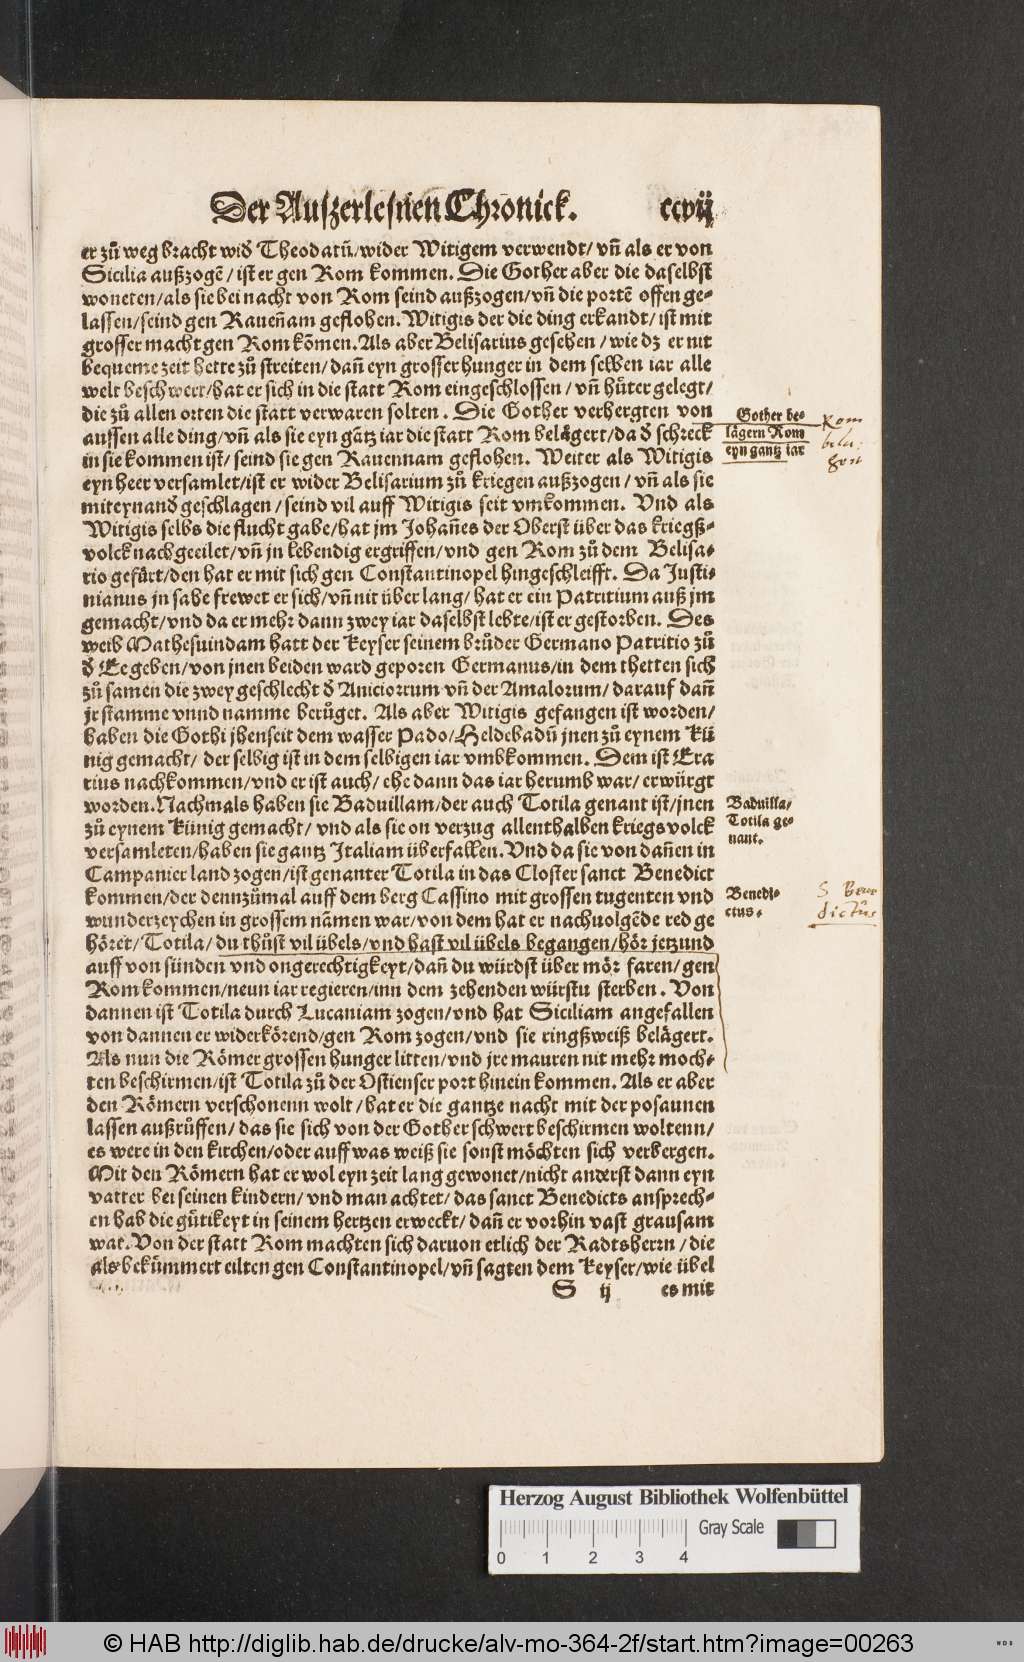 Der Auszerlesnen Chronick. ccvij
er zů weg bracht wid̄ Theodatū/wider Witigem verwendt/ vn̄ als er von
Sicilia außzogē/ ist er gen Rom kommen. Die Gother aber die daselbst
woneten/als sie bei nacht von Rom seind außzogen/vn̄ die portē offen ge-
lassen/seind gen Raueñam geflohen. Witigis der die ding erkandt/ ist mit
grosser macht gen Rom kōmen. Als aber Belisarius gesehen / wie dz er nit
bequeme zeit hette zů streiten/ dañ eyn grosser hunger in dem selben iar alle
welt beschwert/hat er sich in die statt Rom eingeschlossen / vn̄ hüter gelegt/
die zů allen orten die statt verwaren solten. Die Gother verhergten von
aussen alle ding/vn̄ als sie eyn gātz iar die statt Rom belägert/da d̄ schreck
in sie kommen ist/ seind sie gen Rauennam geflohen. Weiter als Witigis
eyn heer versamlet/ist er wider Belisarium zů kriegen außzogen/ vn̄ als sie
miteynand̄ geschlagen / seind vil auff Witigis seit vmkommen. Vnd als
Witigis selbs die flucht gabe/hat jm Johañes der Oberst über das kriegß-
volck nachgeeilet/vn̄ jn lebendig ergriffen/vnd gen Rom zů dem Belisa-
rio gefürt/den hat er mit sich gen Constantinopel hingeschleifft. Da Justi-
nianus jn sahe frewet er sich/vn̄ nit über lang/ hat er ein Patritium auß jm
gemacht/vnd da er mehr dann zwey iar daselbst lebte/ist er gestorben. Des
weib Mathesuindam hatt der Keyser seinem brůder Germano Patritio zů
d̄ Ee geben/von jnen beiden ward geporen Germanus/in dem thetten sich
zů samen die zwey geschlecht d̄ Aniciorrum vn̄ der Amalorum/ darauf dañ
jr stamme vnnd namme berůget. Als aber Witigis gefangen ist worden/
haben die Gothi jhenseit dem wasser Pado/Heldebadū jnen zů eynem Kü
nig gemacht/ der selbig ist in dem selbigen iar vmbkommen. Dem ist Era
rius nachkommen/vnd er ist auch/ ehe dann das iar herumb war/ erwürgt
worden. Nachmals haben sie Baduillam/der auch Totila genant ist/jnen
zů eynem Künig gemacht/ vnd als sie on verzug allenthalben kriegsvolck
versamleten/haben sie gantz Italiam überfallen. Vnd da sie von dañen in
Campanier land zogen/ist genanter Totila in das Closter sanct Benedict
kommen/der dennzůmal auff dem berg Cassino mit grossen tugenten vnd
wunderzeychen in grossem nāmen war/von dem hat er nachuolgēde red ge
höret/Totila/ du thůst vil übels/vnd hast vil übels begangen/hör jetzund
auff von sünden vnd ongerechtigkeyt/dañ du würdst über mör faren/gen
Rom kommen/neun iar regieren/inn dem zehenden würstu sterben. Von
dannen ist Totila durch Lucaniam zogen/vnd hat Siciliam angefallen
von dannen er widerkörend/gen Rom zogen/vnd sie ringßweiß belägert.
Als nun die Römer grossen hunger litten/vnd jre mauren nit mehr moch-
ten beschirmen/ist Totila zů der Ostienser port hinein kommen. Als er aber
den Römern verschonenn wolt/hat er die gantze nacht mit der posaunen
lassen außrüffen/ das sie sich von der Gother schwert beschirmen woltenn/
es were in den kirchen/oder auff was weiß sie sonst möchten sich verbergen.
Mit den Römern hat er wol eyn zeit lang gewonet/nicht anderst dann eyn
vatter bei seinen kindern/ vnd man achtet/ das sanct Benedicts ansprech-
en hab die gütikeyt in seinem hertzen erweckt/ dañ er vorhin vast grausam
wat. Von der statt Rom machten sich daruon etlich der Radtsherrn /die
als bekümmert eilten gen Constantinopel/vn̄ sagten dem Keyser/wie übel
S ij es mit
Gother be-
lägern Rom
eyn gantz iar
Rom
Baduilla/
Totila ge-
nant.
Benedi-
ctus.
S Bene
dictus
Herzog August Bibliothek Wolfenbüttel
Gray Scale
0 1 2 3 4
© HAB http://diglib.hab.de/drucke/alv-mo-364-2f/start.htm?image=00263